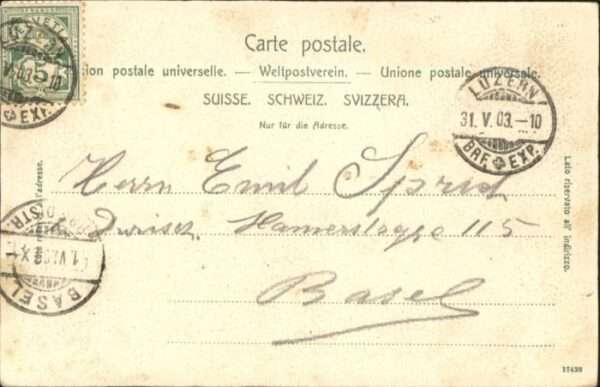 HELVETIA
5
LUZERN
V.03.-10
EXP.
Carte postale.
ion postale universelle. — Weltpostverein. — Unione postale universale.
SUISSE. SCHWEIZ. SVIZZERA.
Nur für die Adresse.
LUZERN
31.V.03.-10
BRF. EXP.
Lato riservato all' indirizzo.
Herrn Emil
115
Basel
1.VI.03.X-
BASEL
17439